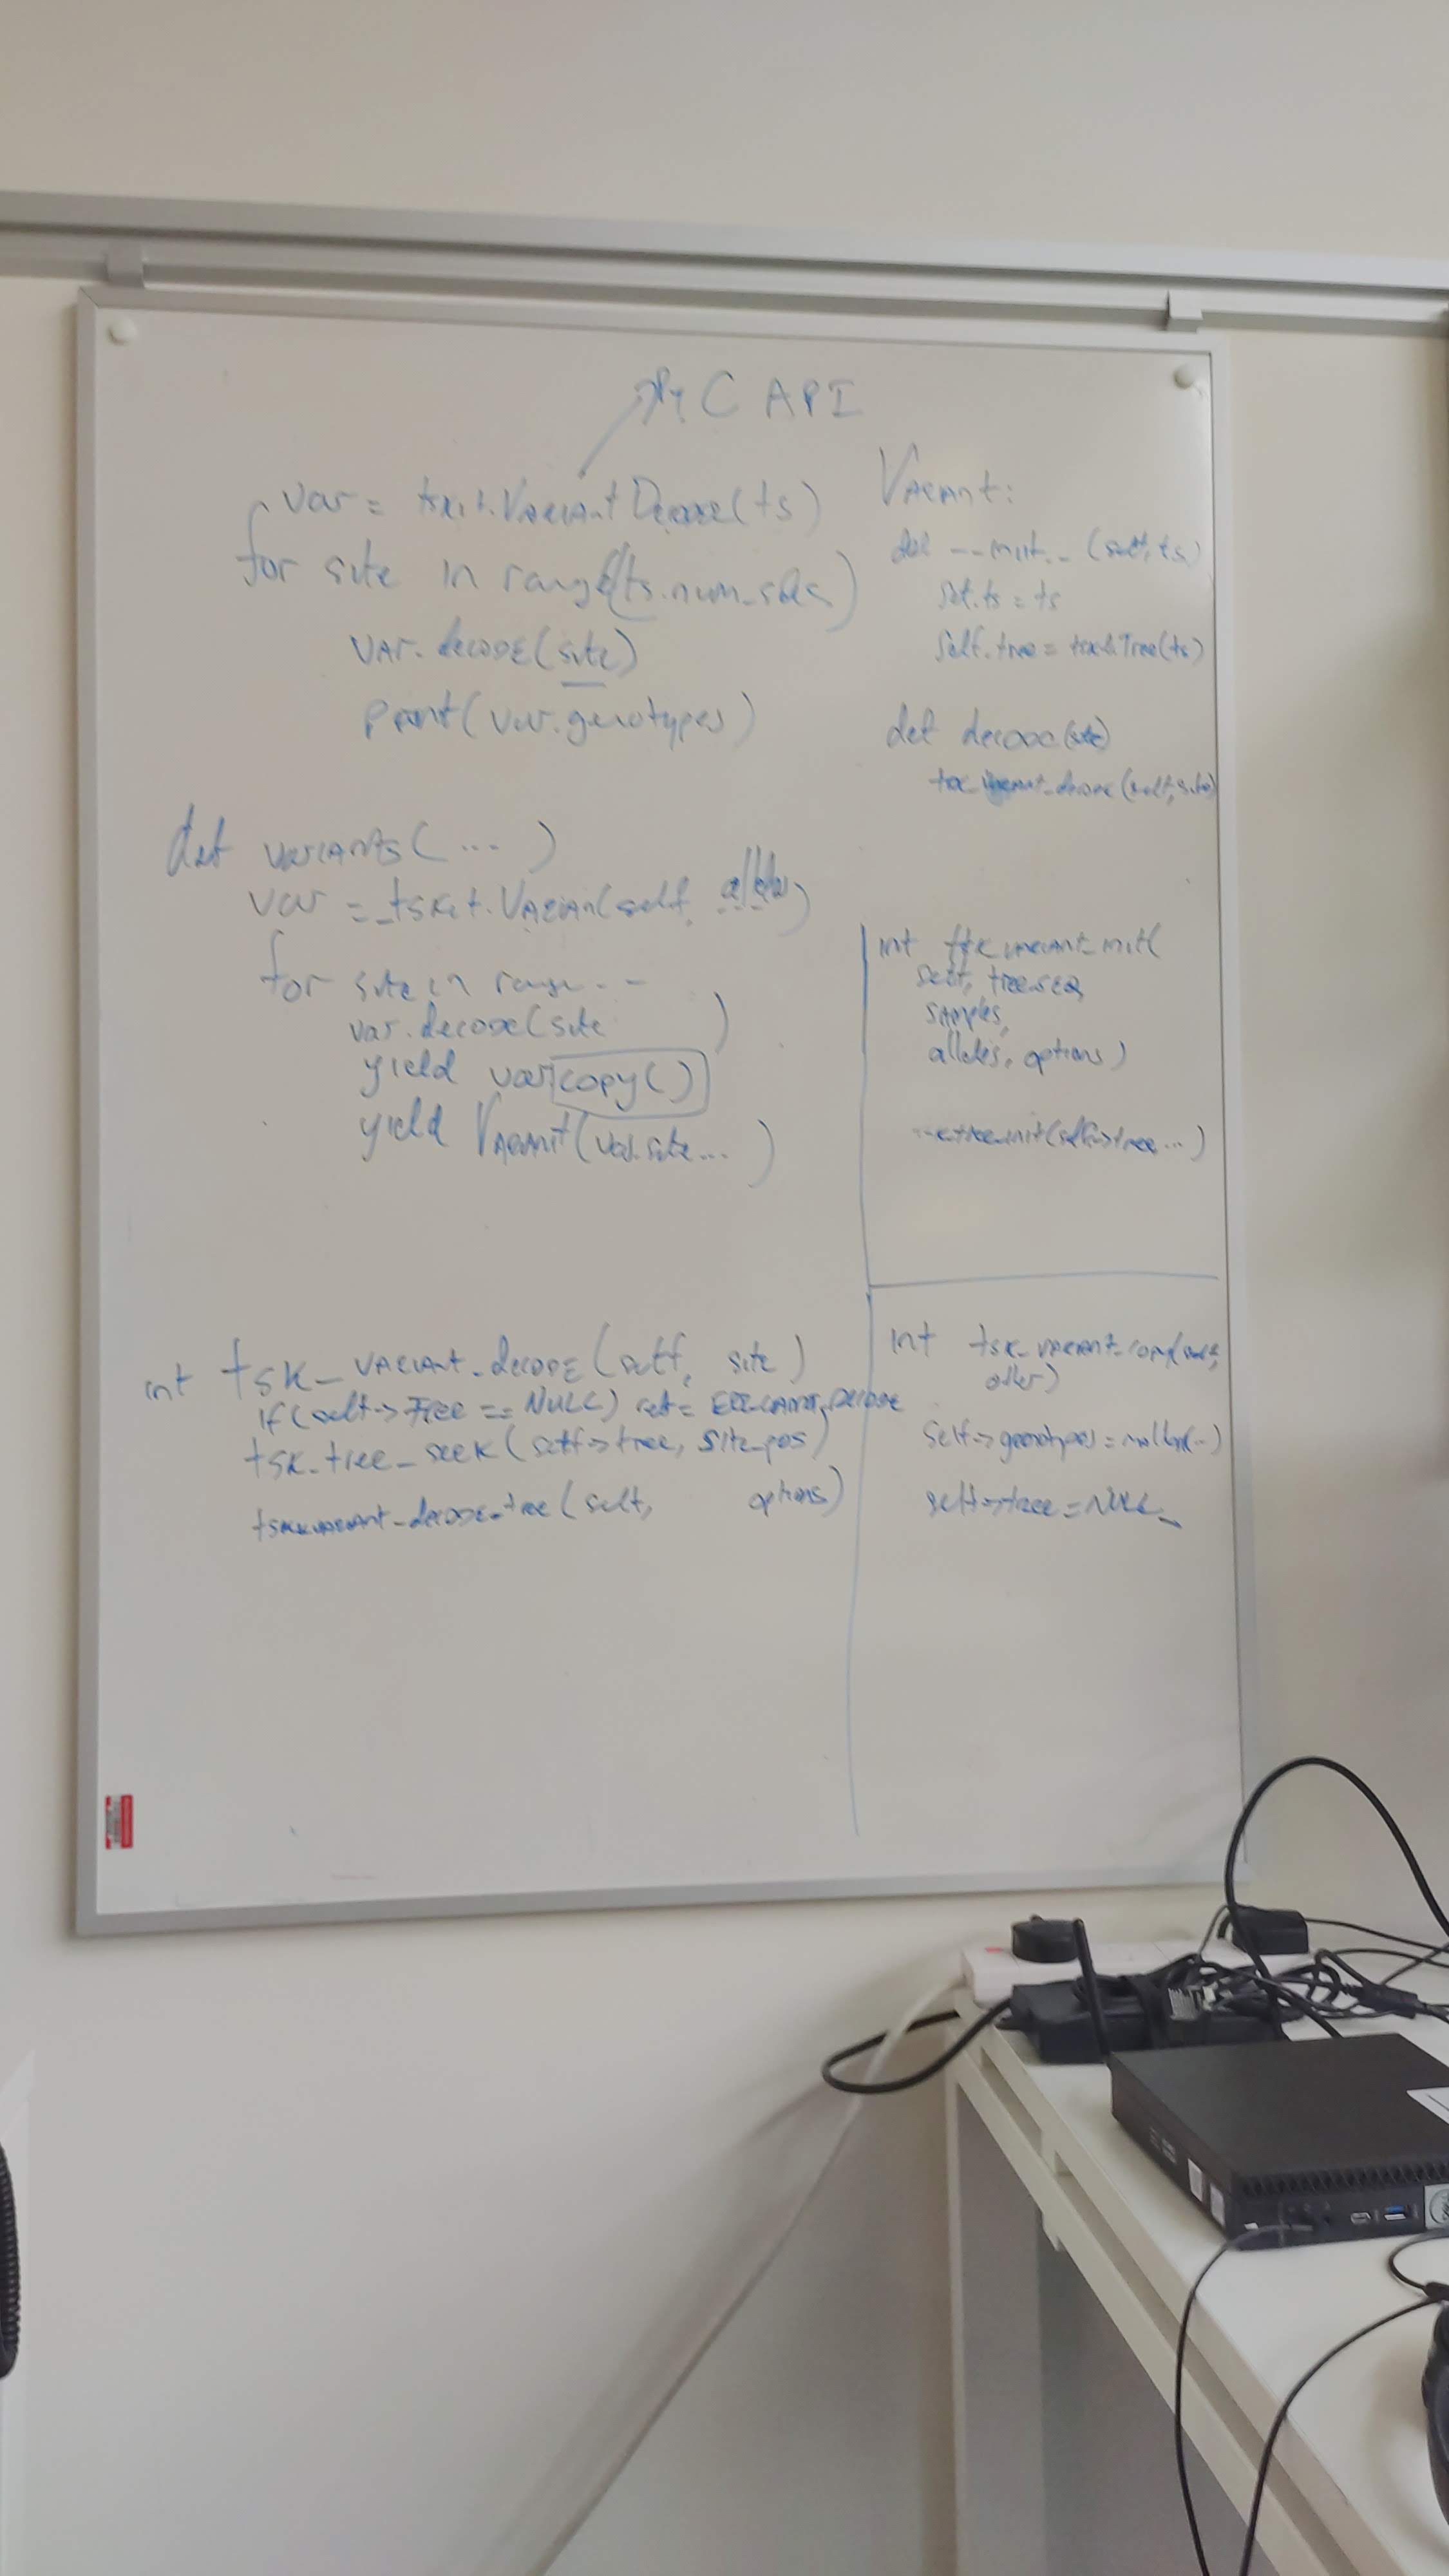 Py C API
var = tskit.VariantDecode(ts)
for site in range(ts.num_sites)
var.decode(site)
print(var.genotypes)
def variants(...)
var = tskit.Varian(self, alleles)
for site in range...
var.decode(site )
yield var.copy()
yield Variant(var.site...)
int tsk_variant_decode(self, site)
if(self->tree == NULL) ret = ERR_CANT_DECODE
tsk_tree_seek(self->tree, site_pos)
tsk_variant_decode_tree(self, options)
Variant:
def __init__(self, ts)
self.ts = ts
self.tree = tskit.Tree(ts)
def decode(site)
tsk_variant_decode(self, site)
int tsk_variant_init(
self, treeseq,
samples,
alleles, options)
tree_init(self->tree, ...)
int tsk_variant_copy(self,
other)
self->genotypes = malloc(..)
self->tree = NULL